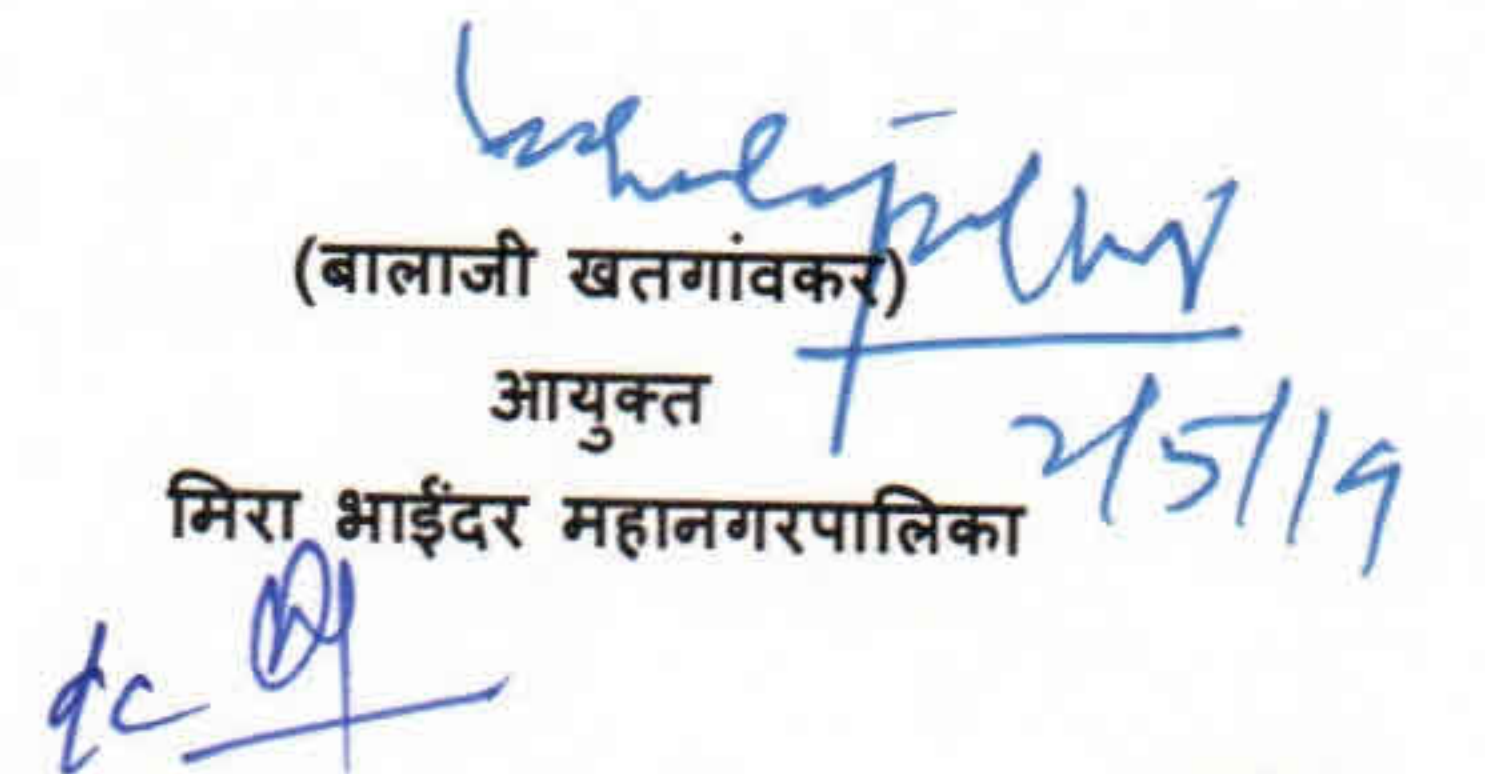 (बालाजी खतगांवकर)
आयुक्त
2/5/19
मिरा भाईंदर महानगरपालिका